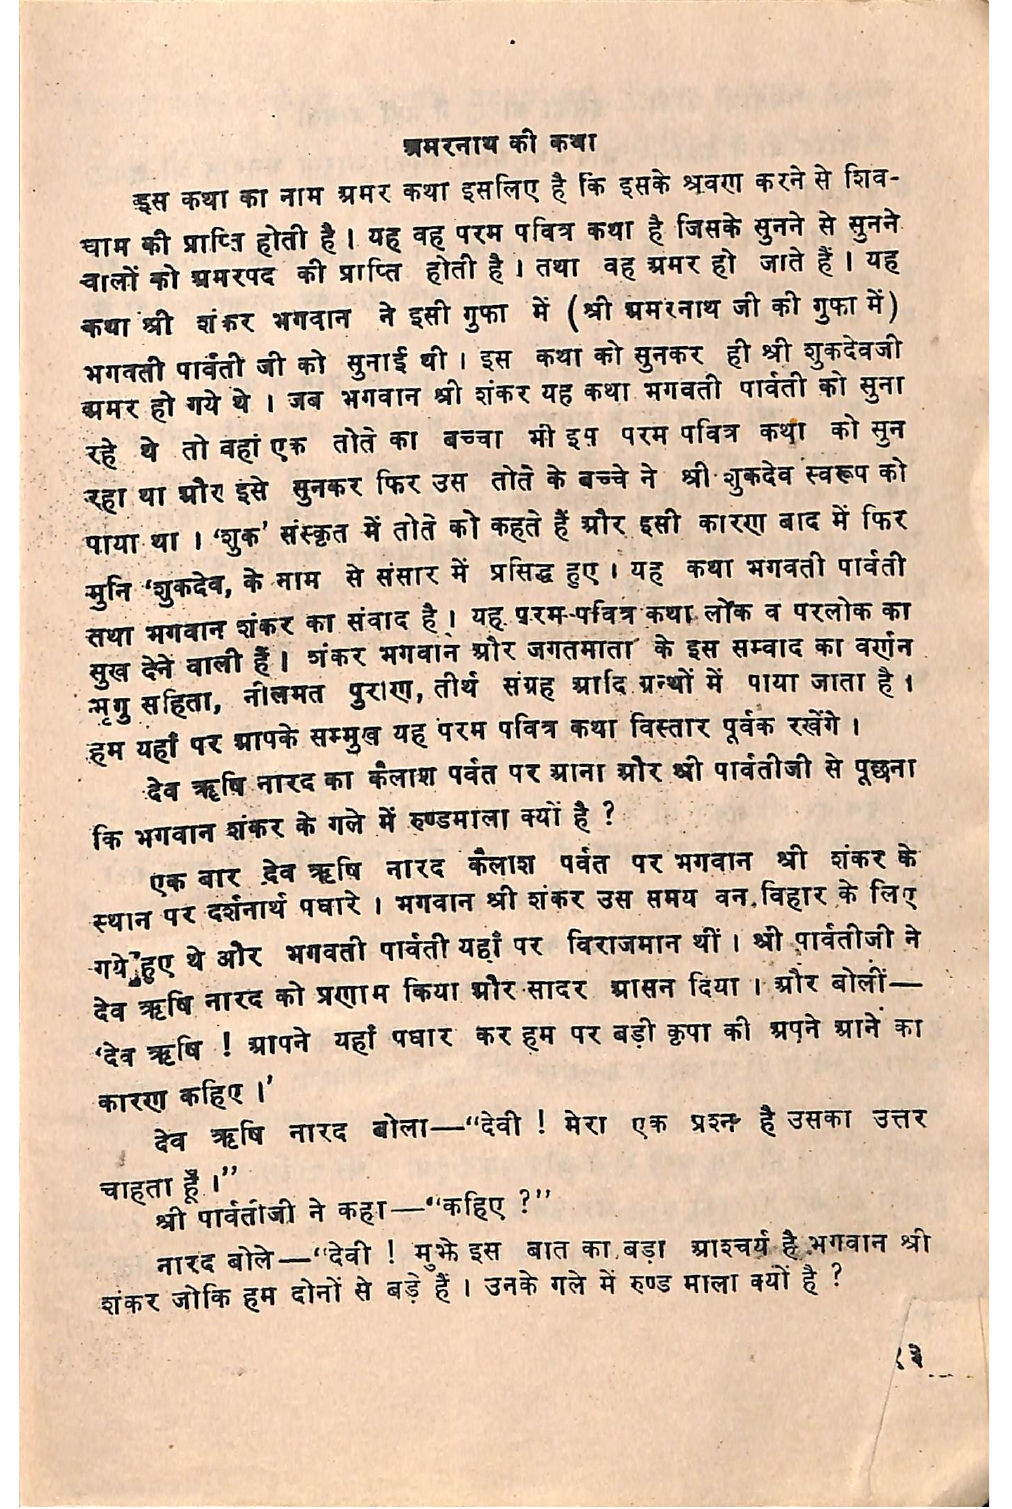 अमरनाथ की कथा
इस कथा का नाम अमर कथा इसलिए है कि इसके श्रवण करने से शिव-
धाम की प्राप्ति होती है । यह वह परम पवित्र कथा है जिसके सुनने से सुनने
वालों को अमरपद की प्राप्ति होती है । तथा वह अमर हो जाते हैं । यह
कथा श्री शंकर भगवान ने इसी गुफा में (श्री अमरनाथ जी की गुफा में)
भगवती पार्वती जी को सुनाई थी । इस कथा को सुनकर ही श्री शुकदेवजी
अमर हो गये थे । जब भगवान श्री शंकर यह कथा भगवती पार्वती को सुना
रहे थे तो वहां एक तोते का बच्चा भी इस परम पवित्र कथा को सुन
रहा था और इसे सुनकर फिर उस तोते के बच्चे ने श्री शुकदेव स्वरूप को
पाया था । ‘शुक’ संस्कृत में तोते को कहते हैं और इसी कारण बाद में फिर
मुनि ‘शुकदेव, के नाम से संसार में प्रसिद्ध हुए । यह कथा भगवती पार्वती
तथा भगवान शंकर का संवाद है । यह परम-पवित्र कथा लोक व परलोक का
सुख देने वाली हैं । शंकर भगवान और जगतमाता के इस सम्वाद का वर्णन
भृगु सहिता, नीलमत पुराण, तीर्थ संग्रह आदि ग्रन्थों में पाया जाता है ।
हम यहाँ पर आपके सम्मुख यह परम पवित्र कथा विस्तार पूर्वक रखेंगे ।
देव ऋषि नारद का कैलाश पर्वत पर आना और श्री पार्वतीजी से पूछना
कि भगवान शंकर के गले में रुण्डमाला क्यों है ?
एक बार देव ऋषि नारद कैलाश पर्वत पर भगवान श्री शंकर के
स्थान पर दर्शनार्थ पधारे । भगवान श्री शंकर उस समय वन विहार के लिए
गये हुए थे और भगवती पार्वती यहाँ पर विराजमान थीं । श्री पार्वतीजी ने
देव ऋषि नारद को प्रणाम किया और सादर आसन दिया । और बोलीं—
‘देव ऋषि ! आपने यहाँ पधार कर हम पर बड़ी कृपा की अपने आने का
कारण कहिए ।’
देव ऋषि नारद बोला—“देवी ! मेरा एक प्रश्न है उसका उत्तर
चाहता हूँ ।”
श्री पार्वतीजी ने कहा—“कहिए ?”
नारद बोले—“देवी ! मुझे इस बात का बड़ा आश्चर्य है भगवान श्री
शंकर जोकि हम दोनों से बड़े हैं । उनके गले में रुण्ड माला क्यों है ?
१३